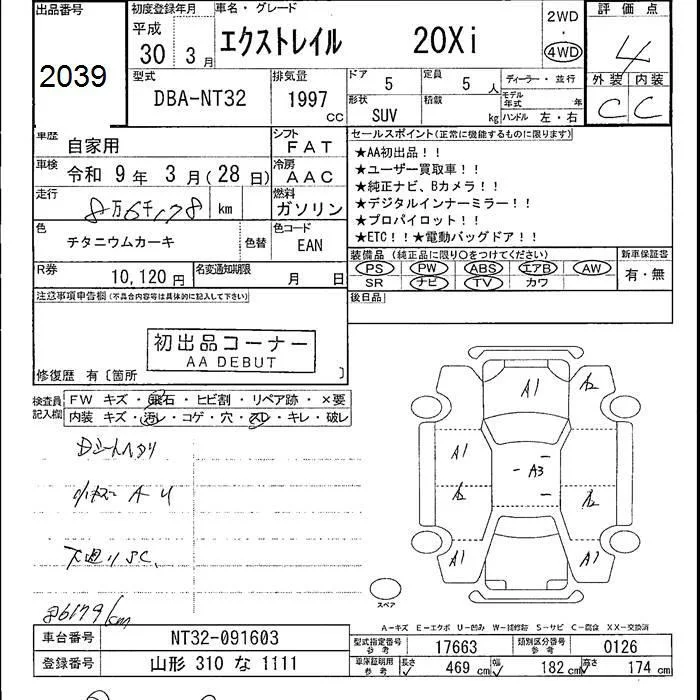 出品番号
2039
初度登録年月
平成
30年 3月
車名・グレード
エクストレイル 20Xi
2WD
・
4WD
評価点
4
外装 内装
C C
型式
DBA-NT32
排気量
1997 CC
ドア 5
定員 5人
形状 SUV
積載 kg
ディーラー・並行
モデル年式 年
ハンドル 左・右
車歴 自家用
シフト FAT
車検 令和 9年 3月(28日)
冷房 AAC
走行 8万6千178 km
燃料 ガソリン
色 チタニウムカーキ
色替
色コード EAN
R券 10,120円
名変通知期限 月 日
セールスポイント(正常に機能するものに限ります)
★AA初出品!!
★ユーザー買取車!!
★純正ナビ、Bカメラ!!
★デジタルインナーミラー!!
★プロパイロット!!
★ETC!!★電動バッグドア!!
装備品 (純正品に限り○をつけてください)
PS PW ABS エアB AW
SR ナビ TV カワ
新車保証書
有・無
後日品
注意事項申告欄(不具合内容等は具体的に記入して下さい)
初出品コーナー
AA DEBUT
修復歴 有〔箇所 〕
検査員記入欄
FW キズ・飛石・ヒビ割・リペア跡・×要
内装 キズ・汚レ・コゲ・穴・スレ・キレ・破レ
Dシートヘタリ
小キズ A U
下廻リSC
86179km
A1 A2
A1
A3
A2 A2
A1 A1
スペア
A-キズ E-エクボ U-凹み W-補修跡 S-サビ C-腐食 XX-交換済
車台番号 NT32-091603
登録番号 山形 310 な 1111
型式指定番号 参考 17663
類別区分番号 参考 0126
車庫証明用 参考 長さ 469 cm 幅 182 cm 高さ 174 cm